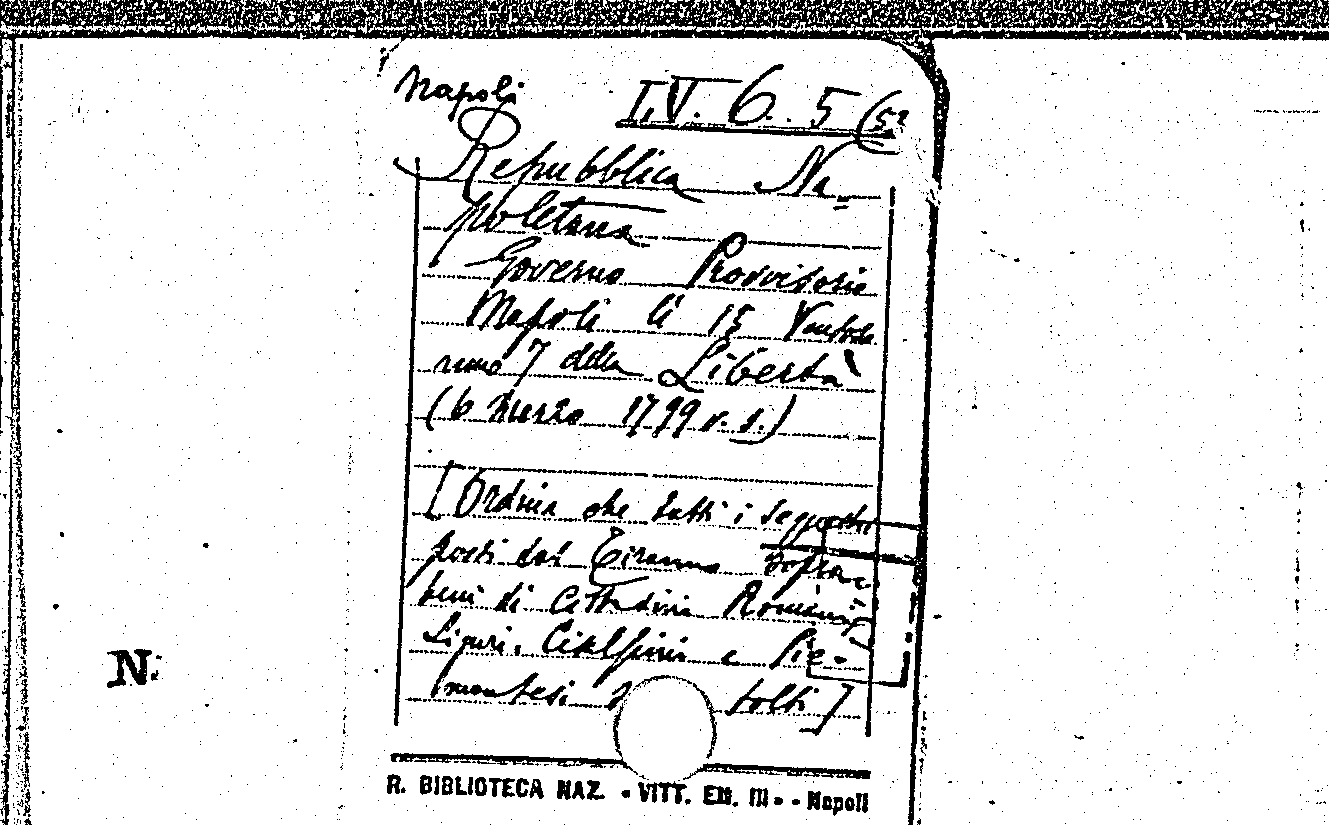 Napoli I.V. 6. 5 (52
Repubblica Na=
poletana
Governo Provvisorio
Napoli li 15 Ventose
anno 7 della Libertà
(6 Marzo 1799 v. s.)
[Ordina che tutti i sequestri
posti dal Tiranno sopra i
beni di Cittadini Romani,
Liguri, Cisalpini e Pie-
montesi tolti]
N.
R. BIBLIOTECA NAZ. - VITT. EM. III - - Napoli